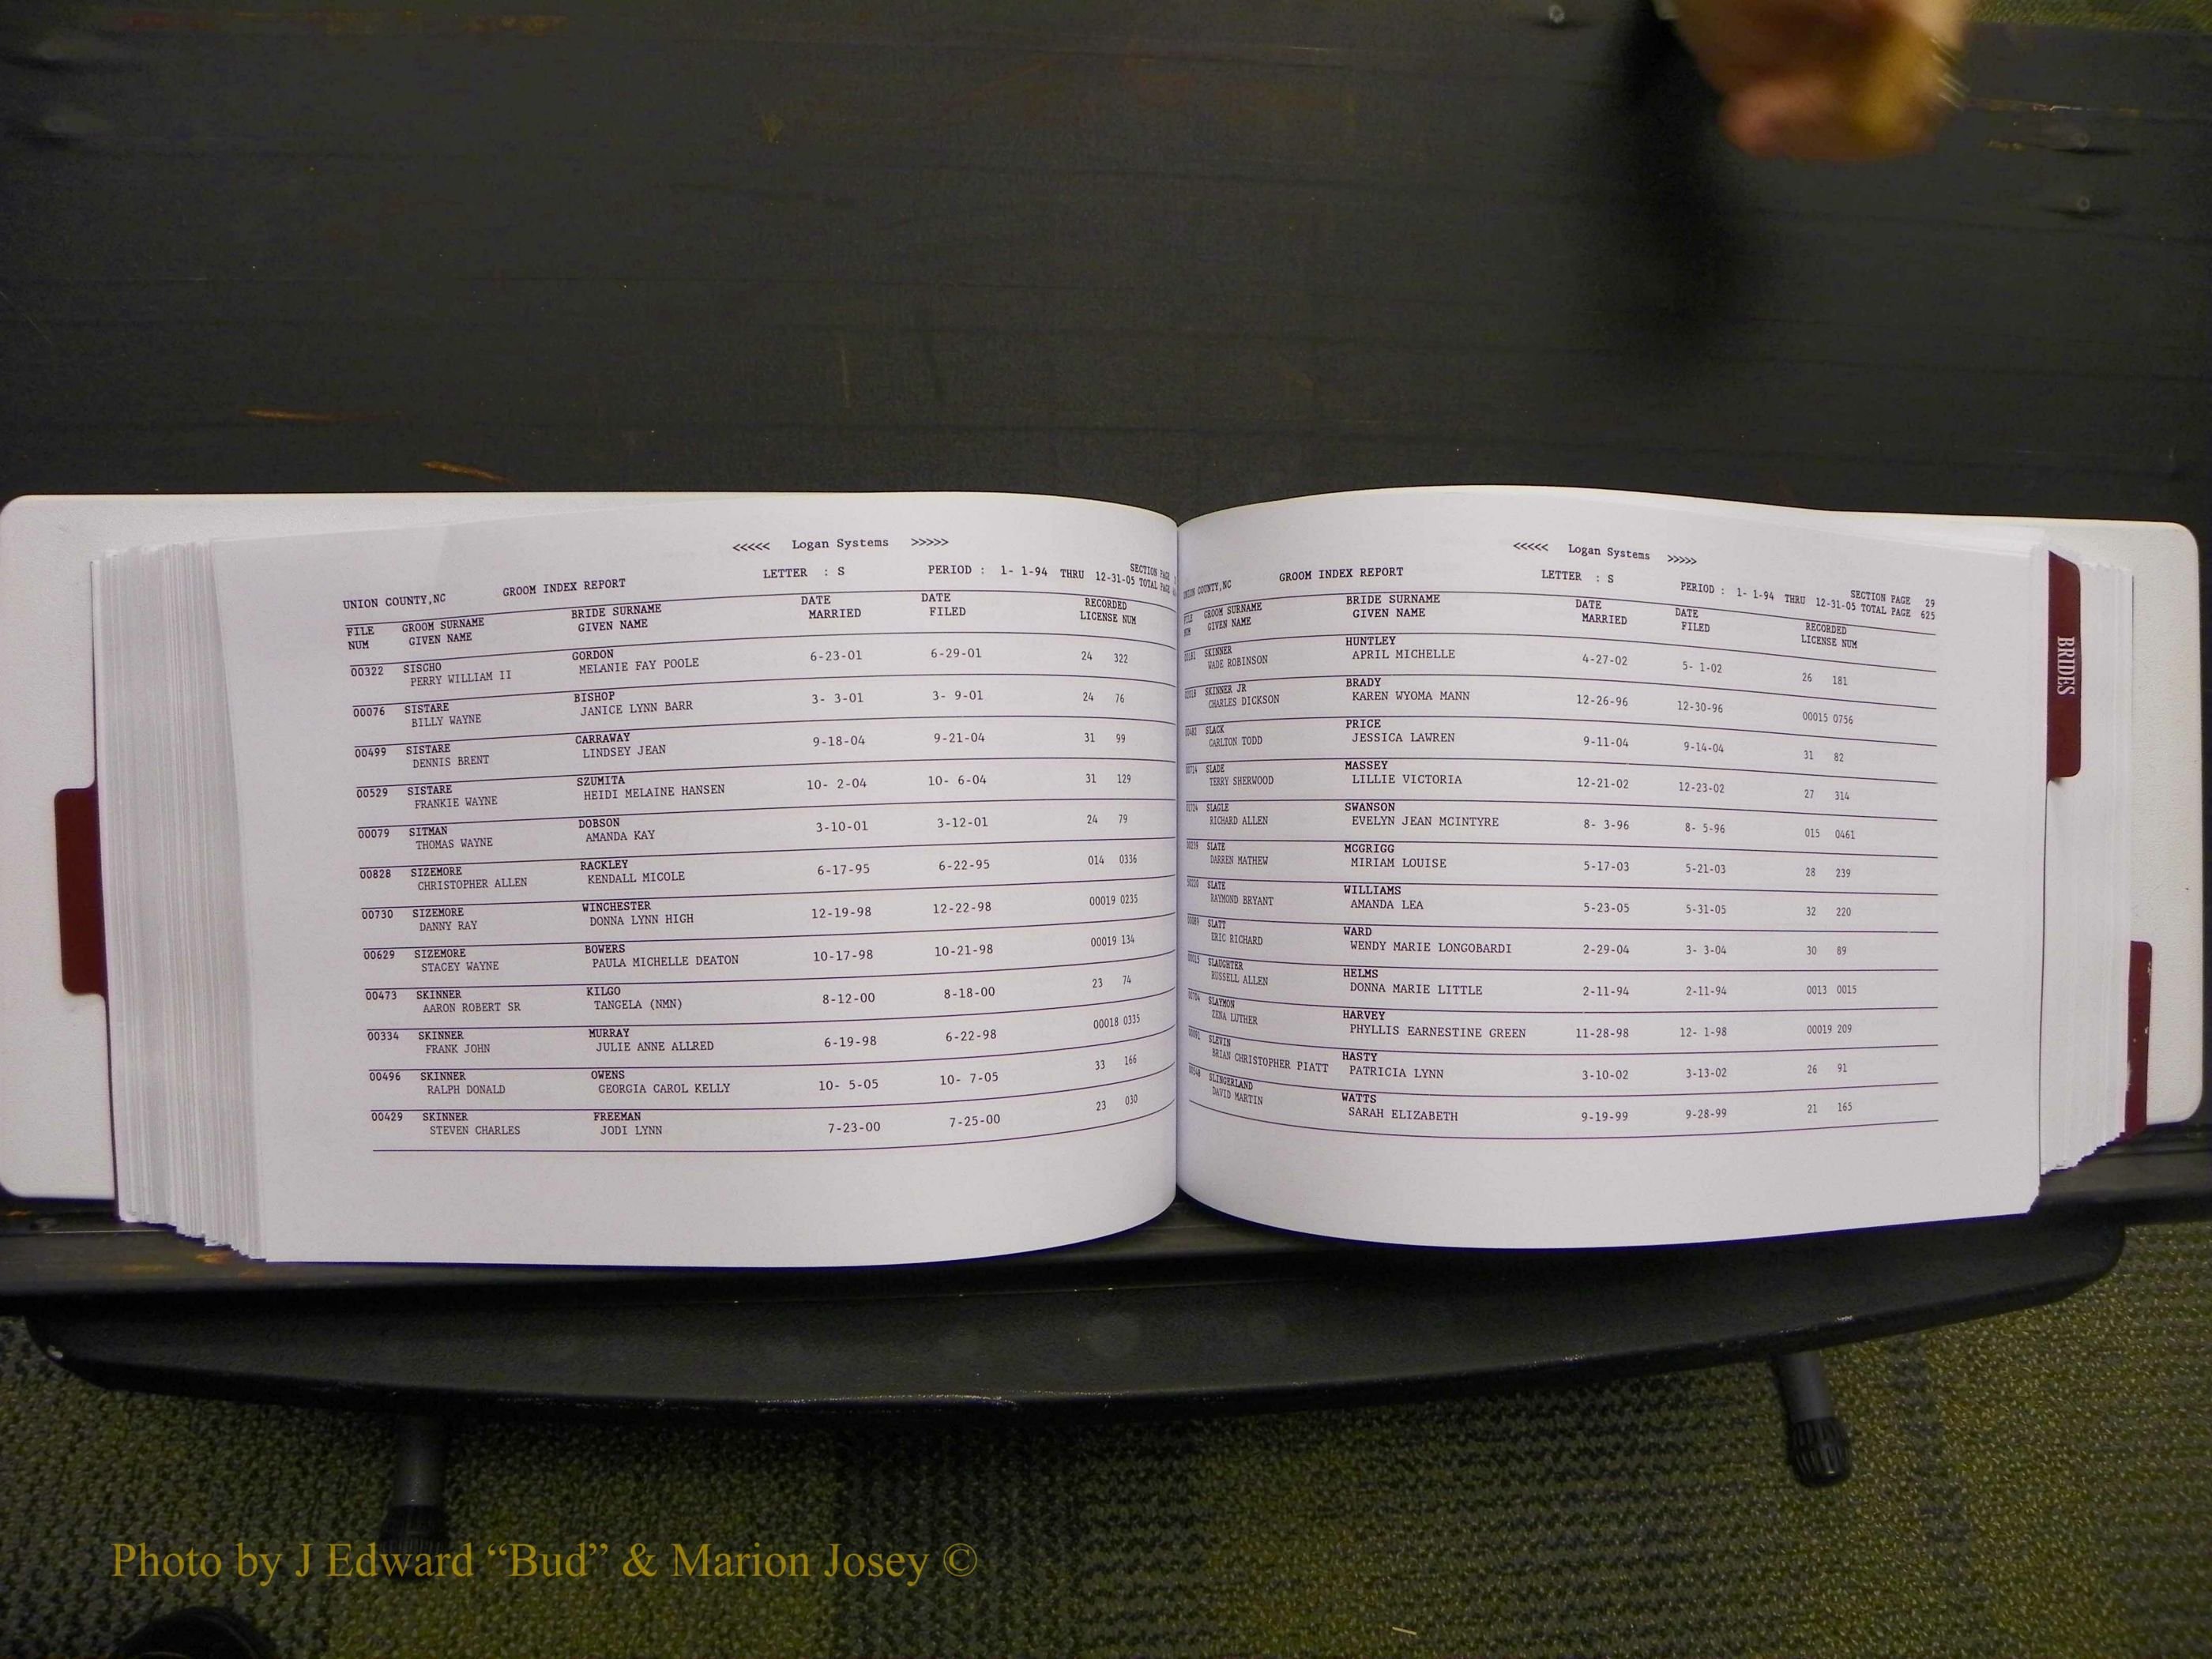 <<<<< Logan Systems >>>>>
UNION COUNTY,NC GROOM INDEX REPORT LETTER : S PERIOD : 1- 1-94 THRU 12-31-05 SECTION PAGE
TOTAL PAGE
FILE GROOM SURNAME BRIDE SURNAME DATE DATE RECORDED
NUM GIVEN NAME GIVEN NAME MARRIED FILED LICENSE NUM
00322 SISCHO GORDON 6-23-01 6-29-01 24 322
PERRY WILLIAM II MELANIE FAY POOLE
00076 SISTARE BISHOP 3- 3-01 3- 9-01 24 76
BILLY WAYNE JANICE LYNN BARR
00499 SISTARE CARRAWAY 9-18-04 9-21-04 31 99
DENNIS BRENT LINDSEY JEAN
00529 SISTARE SZUMITA 10- 2-04 10- 6-04 31 129
FRANKIE WAYNE HEIDI MELAINE HANSEN
00079 SITMAN DOBSON 3-10-01 3-12-01 24 79
THOMAS WAYNE AMANDA KAY
00828 SIZEMORE RACKLEY 6-17-95 6-22-95 014 0336
CHRISTOPHER ALLEN KENDALL MICOLE
00730 SIZEMORE WINCHESTER 12-19-98 12-22-98 00019 0235
DANNY RAY DONNA LYNN HIGH
00629 SIZEMORE BOWERS 10-17-98 10-21-98 00019 134
STACEY WAYNE PAULA MICHELLE DEATON
00473 SKINNER KILGO 8-12-00 8-18-00 23 74
AARON ROBERT SR TANGELA (NMN)
00334 SKINNER MURRAY 6-19-98 6-22-98 00018 0335
FRANK JOHN JULIE ANNE ALLRED
00496 SKINNER OWENS 10- 5-05 10- 7-05 33 166
RALPH DONALD GEORGIA CAROL KELLY
00429 SKINNER FREEMAN 7-23-00 7-25-00 23 030
STEVEN CHARLES JODI LYNN
<<<<< Logan Systems >>>>>
UNION COUNTY,NC GROOM INDEX REPORT LETTER : S PERIOD : 1- 1-94 THRU 12-31-05 SECTION PAGE 29
TOTAL PAGE 625
FILE GROOM SURNAME BRIDE SURNAME DATE DATE RECORDED
NUM GIVEN NAME GIVEN NAME MARRIED FILED LICENSE NUM
SKINNER HUNTLEY 4-27-02 5- 1-02 26 181
WADE ROBINSON APRIL MICHELLE
SKINNER JR BRADY 12-26-96 12-30-96 00015 0756
CHARLES DICKSON KAREN WYOMA MANN
SLACK PRICE 9-11-04 9-14-04 31 82
CARLTON TODD JESSICA LAWREN
SLADE MASSEY 12-21-02 12-23-02 27 314
TERRY SHERWOOD LILLIE VICTORIA
SLAGLE SWANSON 8- 3-96 8- 5-96 015 0461
RICHARD ALLEN EVELYN JEAN MCINTYRE
SLATE MCGRIGG 5-17-03 5-21-03 28 239
DARREN MATHEW MIRIAM LOUISE
SLATE WILLIAMS 5-23-05 5-31-05 32 220
RAYMOND BRYANT AMANDA LEA
SLATT WARD 2-29-04 3- 3-04 30 89
ERIC RICHARD WENDY MARIE LONGOBARDI
SLAUGHTER HELMS 2-11-94 2-11-94 0013 0015
RUSSELL ALLEN DONNA MARIE LITTLE
SLAYMON HARVEY 11-28-98 12- 1-98 00019 209
ZENA LUTHER PHYLLIS EARNESTINE GREEN
SLEVIN HASTY 3-10-02 3-13-02 26 91
BRIAN CHRISTOPHER PIATT PATRICIA LYNN
SLINGERLAND WATTS 9-19-99 9-28-99 21 165
DAVID MARTIN SARAH ELIZABETH
BRIDES
Photo by J Edward “Bud” & Marion Josey ©